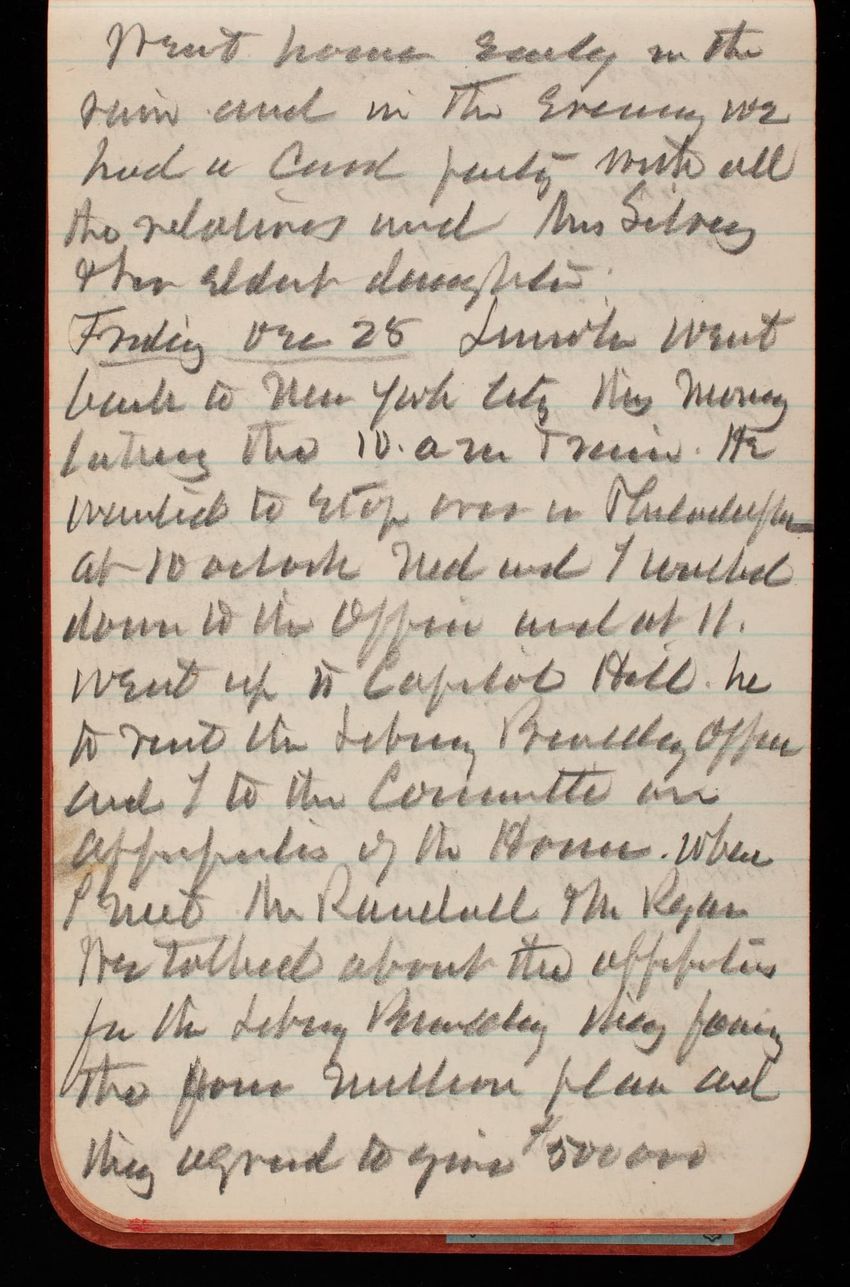 Went home early in the
rain and in the Evening we
had a Card party with all
the relatives and Mrs Gilvey
& her eldest daughter
Friday Dec 28 Lincoln went
back to New York City this Morning
taking the 10. a m Train. He
wanted to Stop over in Philadelphia
at 10 oclock Ned and I walked
down to the Office and at 11.
went up to Capitol Hill. he
to rent the Library Building Office
and I to the Committee on
appropriatis of the House. When
I met Mr Randall & Mr Ryan
We talked about the appropriation
for the Library Building they favoring
the four million plan and
they agreed to give $500000